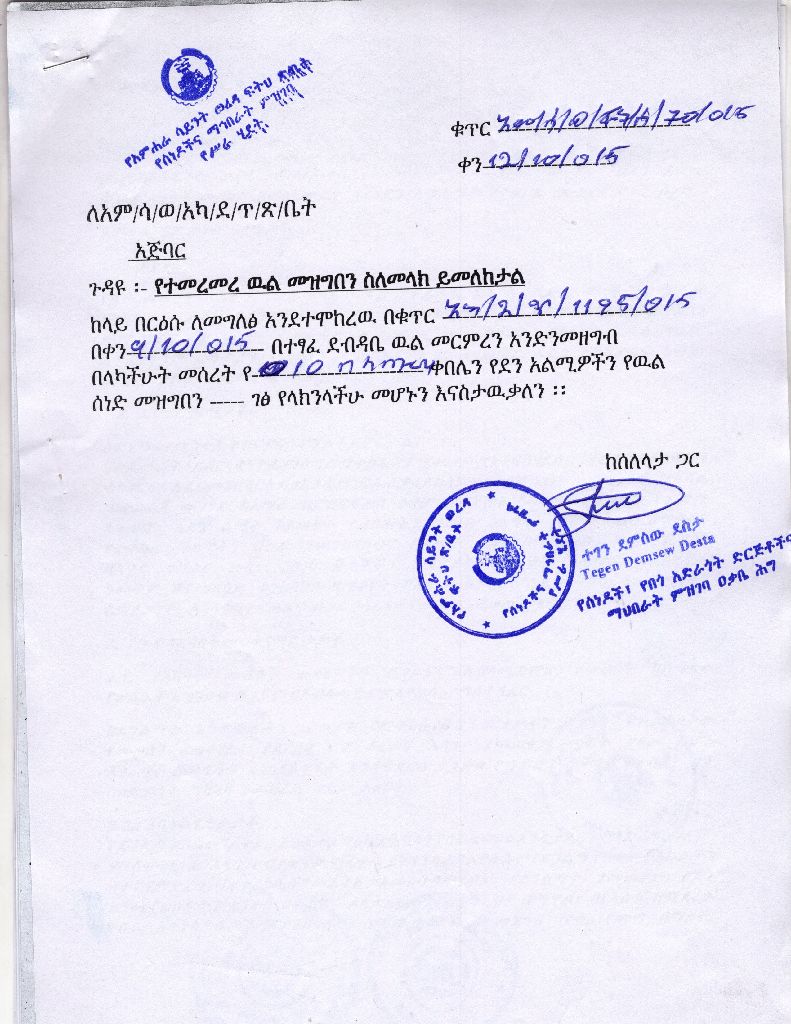 የአምሐራ ሳይንት ወረዳ ፍትህ ጽ/ቤት
የሰነዶችና ማኅበራት ምዝገባ
የሥራ ሂደት
ቁጥር አም/ሳ/ወ/ፍ/ጽ/70/015
ቀን 12/10/015
ለአም/ሳ/ወ/አካ/ደ/ጥ/ጽ/ቤት
አጅባር
ጉዳዩ ፡- የተመረመረ ዉል መዝግበን ስለመላክ ይመለከታል
ከላይ በርዕሱ ለመግለፅ እንደተሞከረዉ በቁጥር 1195/015
በቀን 9/10/015 በተፃፈ ደብዳቤ ዉል መርምረን እንድንመዘግብ
በላካችሁት መሰረት የ 010 ቀበሌን የደን አልሚዎችን የዉል
ሰነድ መዝግበን ----- ገፅ የላክንላችሁ መሆኑን እናስታዉቃለን ፡፡
ከሰለላታ ጋር
የአምሐራ ሳይንት ወረዳ
ፍትህ ጽ/ቤት
ተገን ደምሰው ደስታ
Tegen Demsew Desta
የሰነዶች፣ የበጎ አድራጎት ድርጅቶችና
ማህበራት ምዝገባ ዐቃቤ ሕግ